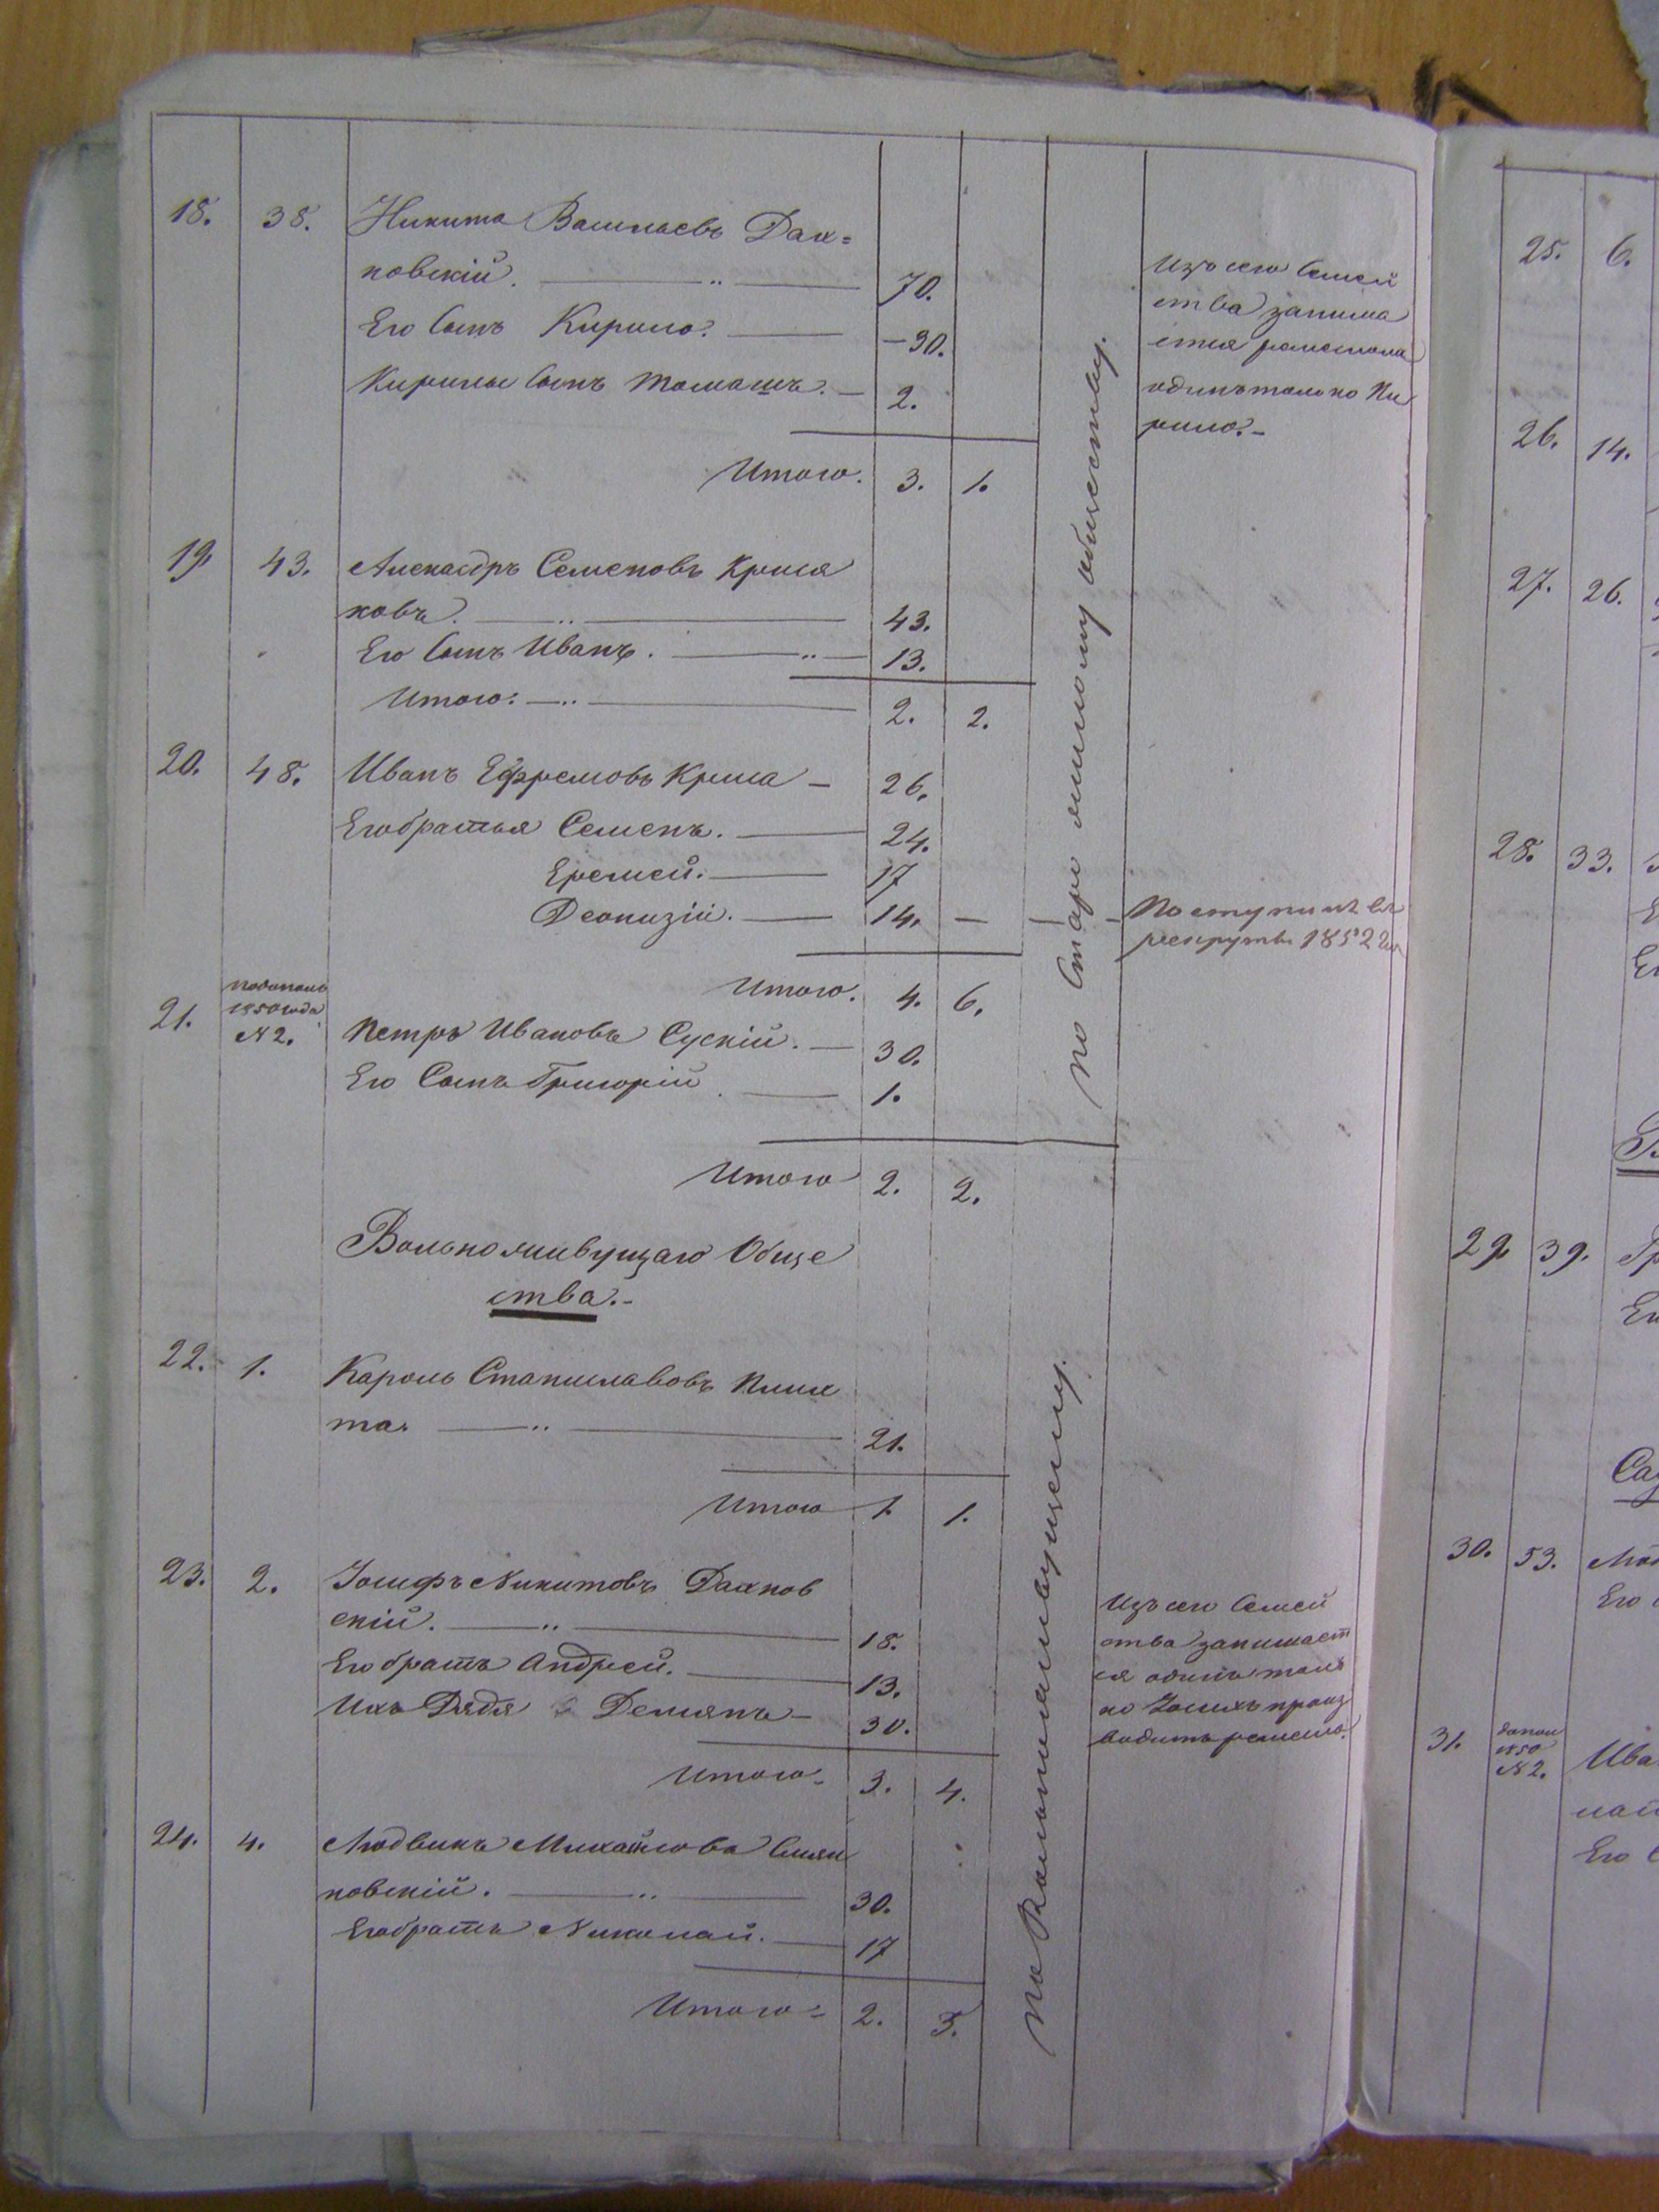 18. 38. Никита Васильевъ Дах=
новскій. 70.
Его Сынъ Кирило. 30.
Кирилы Сынъ Томашъ. 2.
Итого. 3. 1.
Изъ сего Семей
ства занима
ется ремесломъ
одинъ только Ки
рило.
19. 43. Александръ Семеновъ Крися
ковъ. 43.
Его Сынъ Иванъ. 13.
Итого: 2. 2.
20. 48. Иванъ Ефремовъ Криса 26.
Его братья Семенъ. 24.
Еремей. 17
Деонизій. 14.
Поступилъ въ
рекруты 1852 г
Итого. 4. 6.
21. 1850 года
N 2. Петръ Ивановъ Сускій. 30.
Его Сынъ Григорій 1.
Итого 2. 2.
по Старо обществу.
Вольноживущаго Обще
ства.
22. 1. Кароль Станиславовъ Плих
та. 21.
Итого 1. 1.
23. 2. Іосифъ Никитовъ Дахнов
скій. 18.
Его братъ Андрей. 13.
Ихъ Дядя Демянъ 30.
Итого 3. 4.
Изъ сего Семей
ства занимает
ся одинъ толь
ко Іосифъ произ
водитъ ремесло.
24. 4. Людвикъ Михайлова
новскій. 30.
Его братъ Николай. 17
Итого 2. 3.
по Вольноживущему.
25. 6.
26. 14.
27. 26.
28. 33.
29. 39.
Его
30. 53.
Его
31. 1850
N 2. Ива
Его